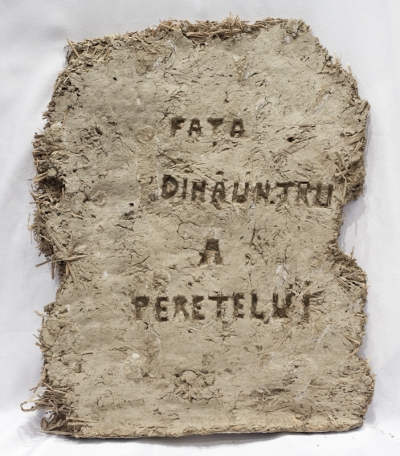 FAȚA
DINĂUNTRU
A
PERETELUI